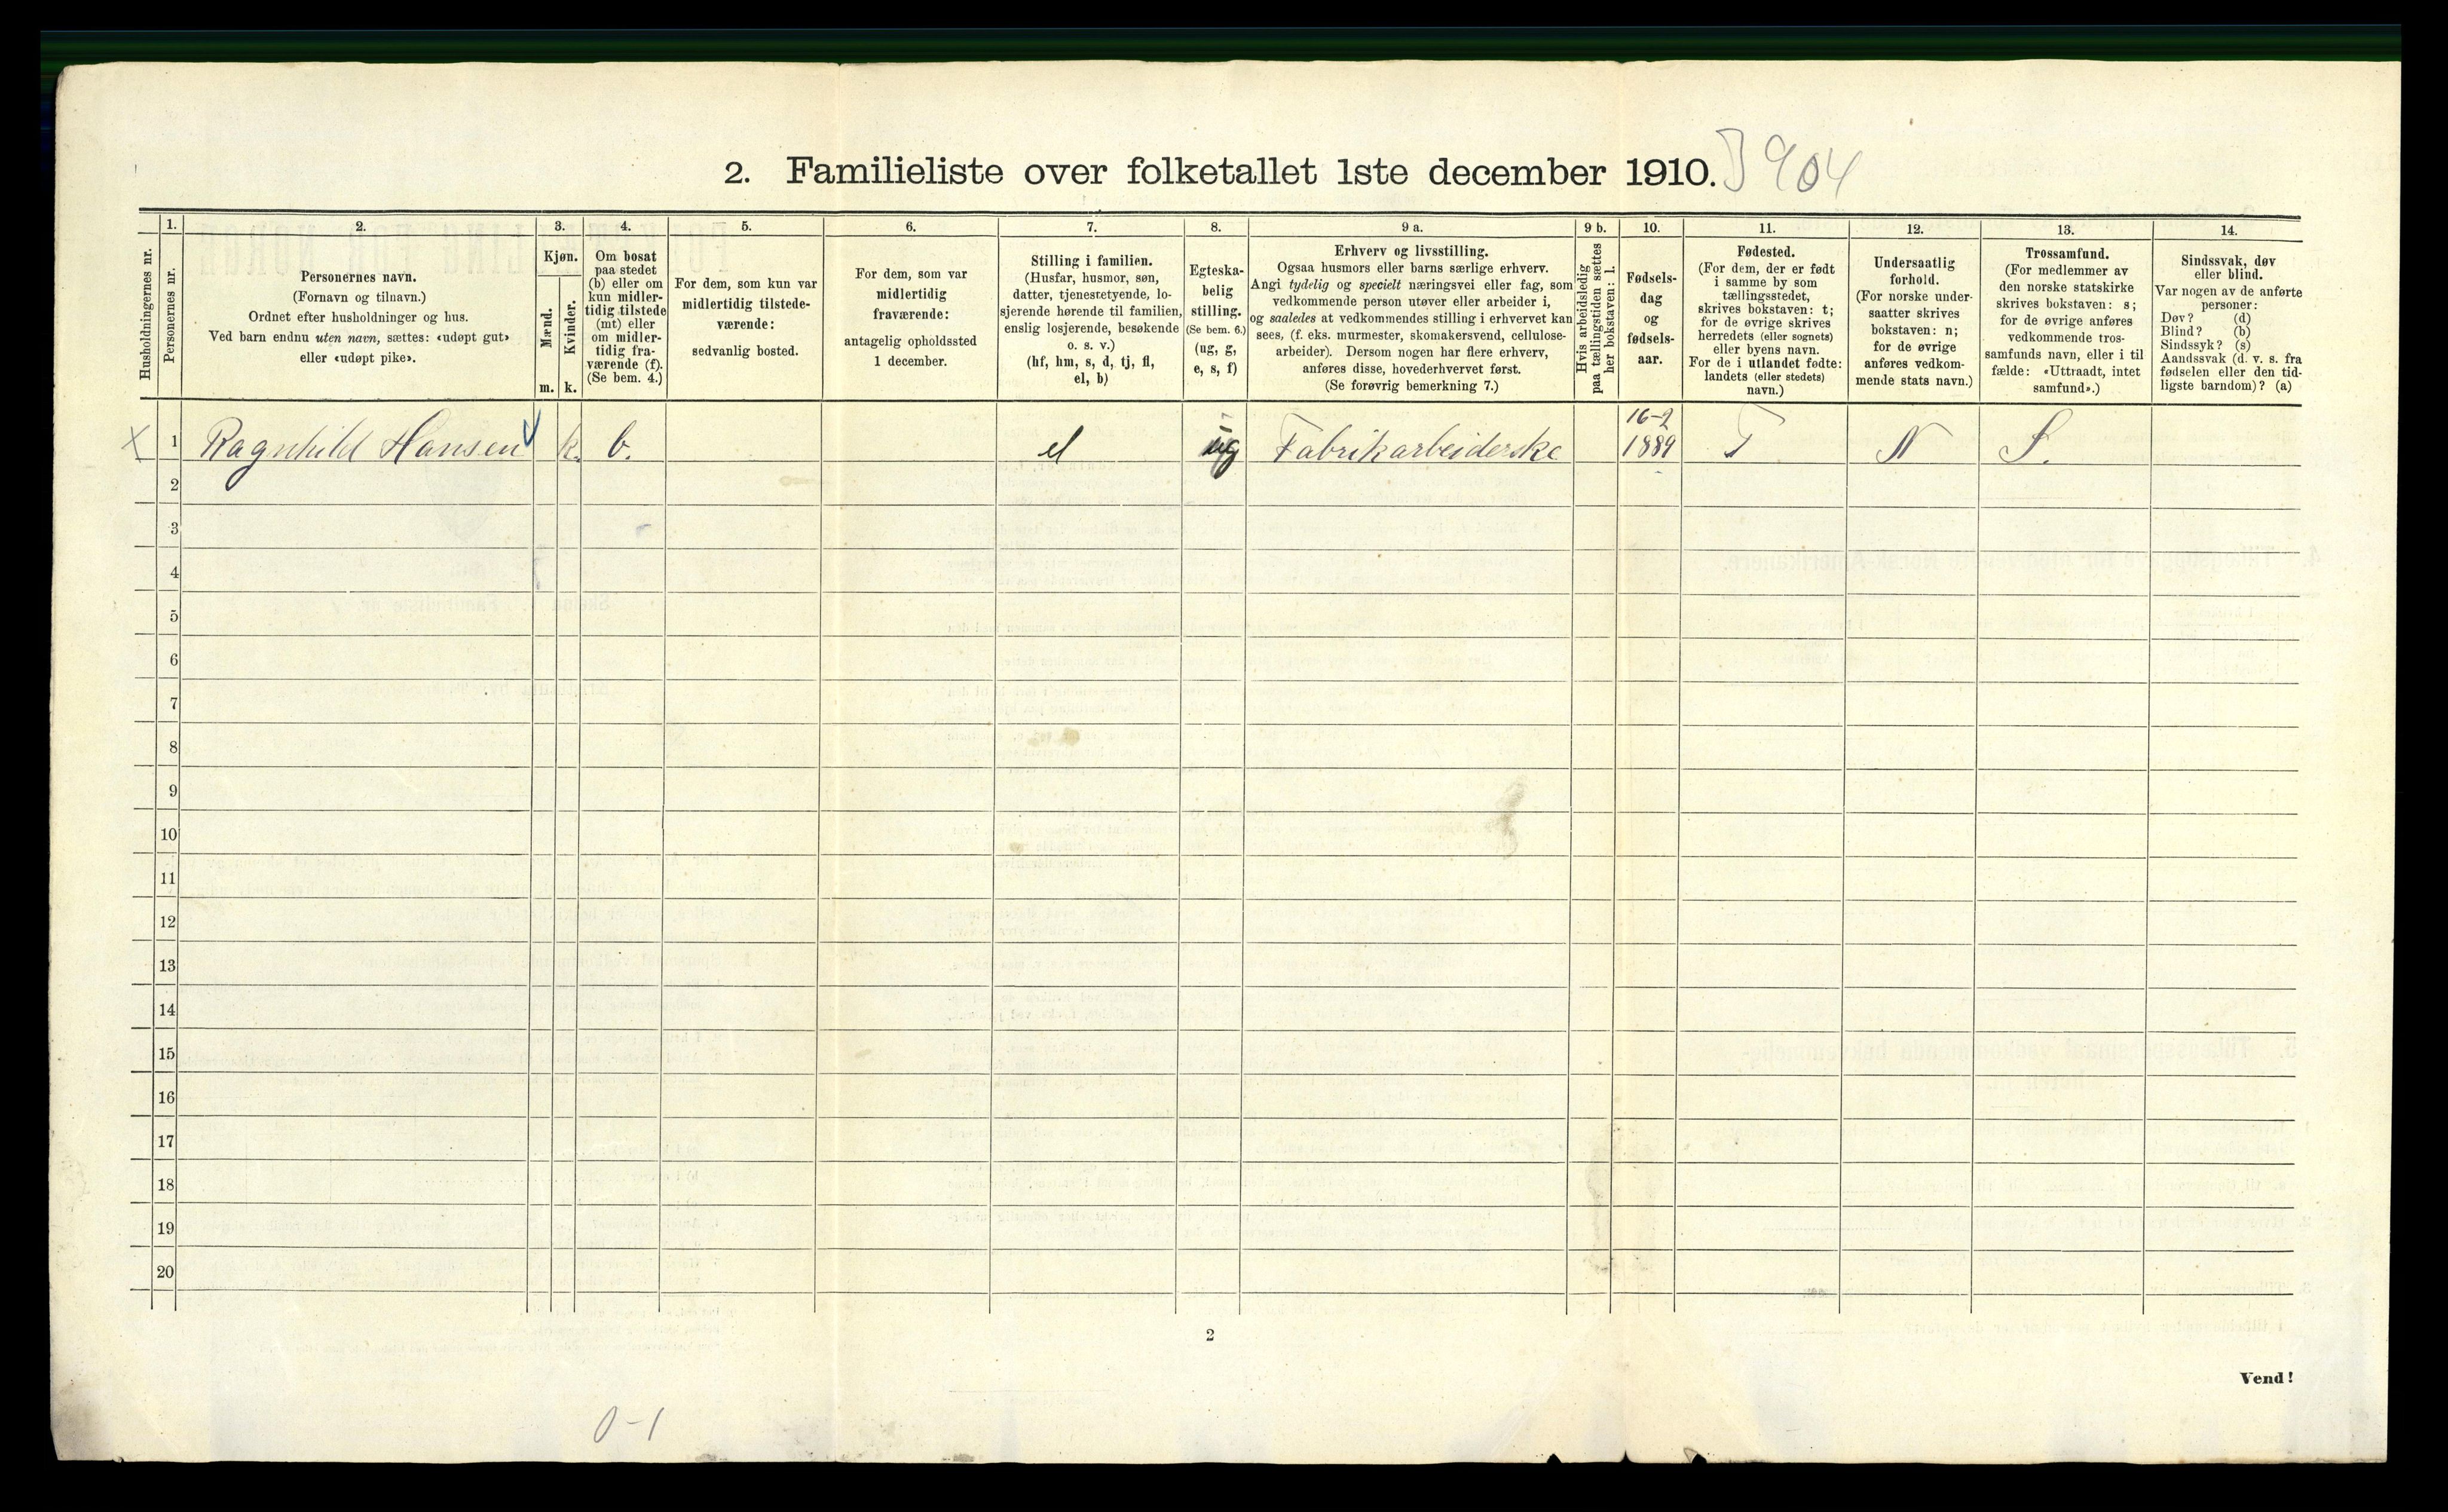 2. Familieliste over folketallet 1ste december 1910. 904
Husholdningernes nr.
1.
Personernes nr.
2.
Personernes navn.
(Fornavn og tilnavn.)
Ordnet efter husholdninger og hus.
Ved barn endnu uten navn, sættes: «udøpt gut»
eller «udøpt pike».
3.
Kjøn.
Mænd.
m.
Kvinder.
k.
4.
Om bosat
paa stedet
(b) eller om
kun midler-
tidig tilstede
(mt) eller
om midler-
tidig fra-
værende (f).
(Se bem. 4.)
5.
For dem, som kun var
midlertidig tilstede-
værende:
sedvanlig bosted.
6.
For dem, som var
midlertidig
fraværende:
antagelig opholdssted
1 december.
7.
Stilling i familien.
(Husfar, husmor, søn,
datter, tjenestetyende, lo-
sjerende hørende til familien,
enslig losjerende, besøkende
o. s. v.)
(hf, hm, s, d, tj, fl,
el, b)
8.
Egteska-
belig
stilling.
(Se bem. 6.)
(ug, g,
e, s, f)
9 a.
Erhverv og livsstilling.
Ogsaa husmors eller barns særlige erhverv.
Angi tydelig og specielt næringsvei eller fag, som
vedkommende person utøver eller arbeider i,
og saaledes at vedkommendes stilling i erhvervet kan
sees, (f. eks. murmester, skomakersvend, cellulose-
arbeider). Dersom nogen har flere erhverv,
anføres disse, hovederhvervet først.
(Se forøvrig bemerkning 7.)
9 b.
Hvis arbeidsledig
paa tællingstiden sættes
her bokstaven: l.
10.
Fødsels-
dag
og
fødsels-
aar.
11.
Fødested.
(For dem, der er født
i samme by som
tællingsstedet,
skrives bokstaven: t;
for de øvrige skrives
herredets (eller sognets)
eller byens navn.
For de i utlandet fødte:
landets (eller stedets)
navn.)
12.
Undersaatlig
forhold.
(For norske under-
saatter skrives
bokstaven: n;
for de øvrige
anføres vedkom-
mende stats navn.)
13.
Trossamfund.
(For medlemmer av
den norske statskirke
skrives bokstaven: s;
for de øvrige anføres
vedkommende tros-
samfunds navn, eller i til
fælde: «Uttraadt, intet
samfund».)
14.
Sindssvak, døv
eller blind.
Var nogen av de anførte
personer:
Døv? (d)
Blind? (b)
Sindssyk? (s)
Aandssvak (d. v. s. fra
fødselen eller den tid-
ligste barndom)? (a)
X 1 Ragnhild Hansen k. b. el ug Fabrikarbeiderske 16-2 1889 T N S.
2
3
4
5
6
7
8
9
10
11
12
13
14
15
16
17
18
19
20
2
Vend!
0-1